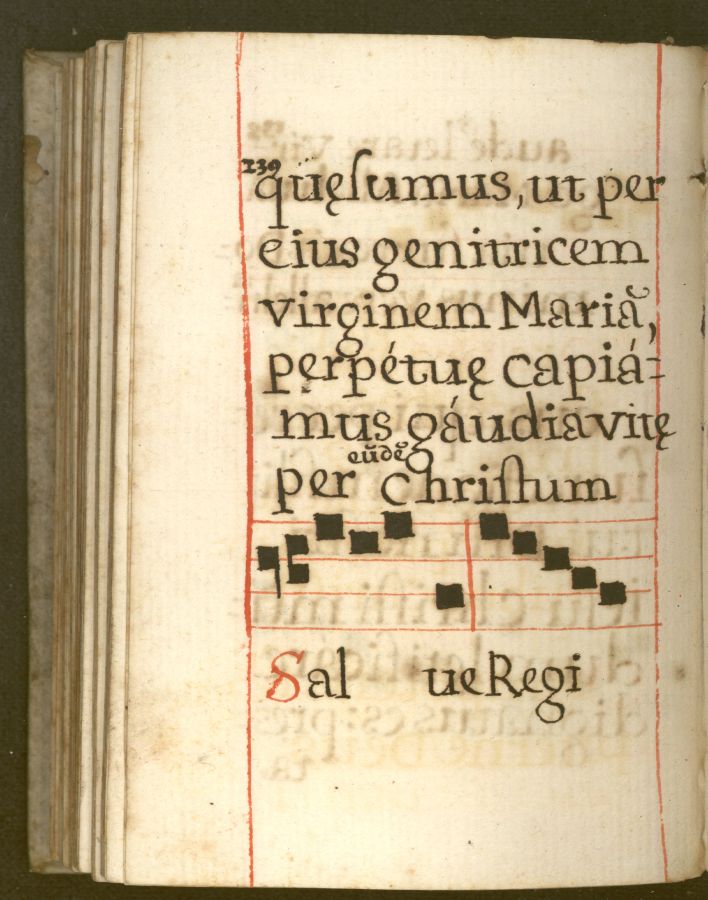 139
quęsumus, ut per
eius genitricem
virginem Mariã,
perpétuę capiá=
mus gáudia vitę
eũdẽ
per Christum
Sal ue Regi